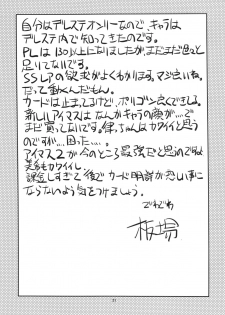 自分はデレステオンリーなので、キャラは
デレステ内で知ってきたのです。
PLは130以上になりましたが、まだまだ色々と
足りてないです。
SSレアの欲求がよくつくります。マジ良いね。
だって動くんだもん。
カードは止まってるけど、ポリゴン良くできてる。
新しいアイマスはなんかキャラの顔が…で
まだ買ってないです。律ちゃんはカワイイと思う
のですが…困った…。
アイマス2が今のところ最強だと思ってるのですね
カワイイし
課金しすぎて後でカード明細が恐い事に
ならないよう気をつけましょう。
でわでわ
板場
31